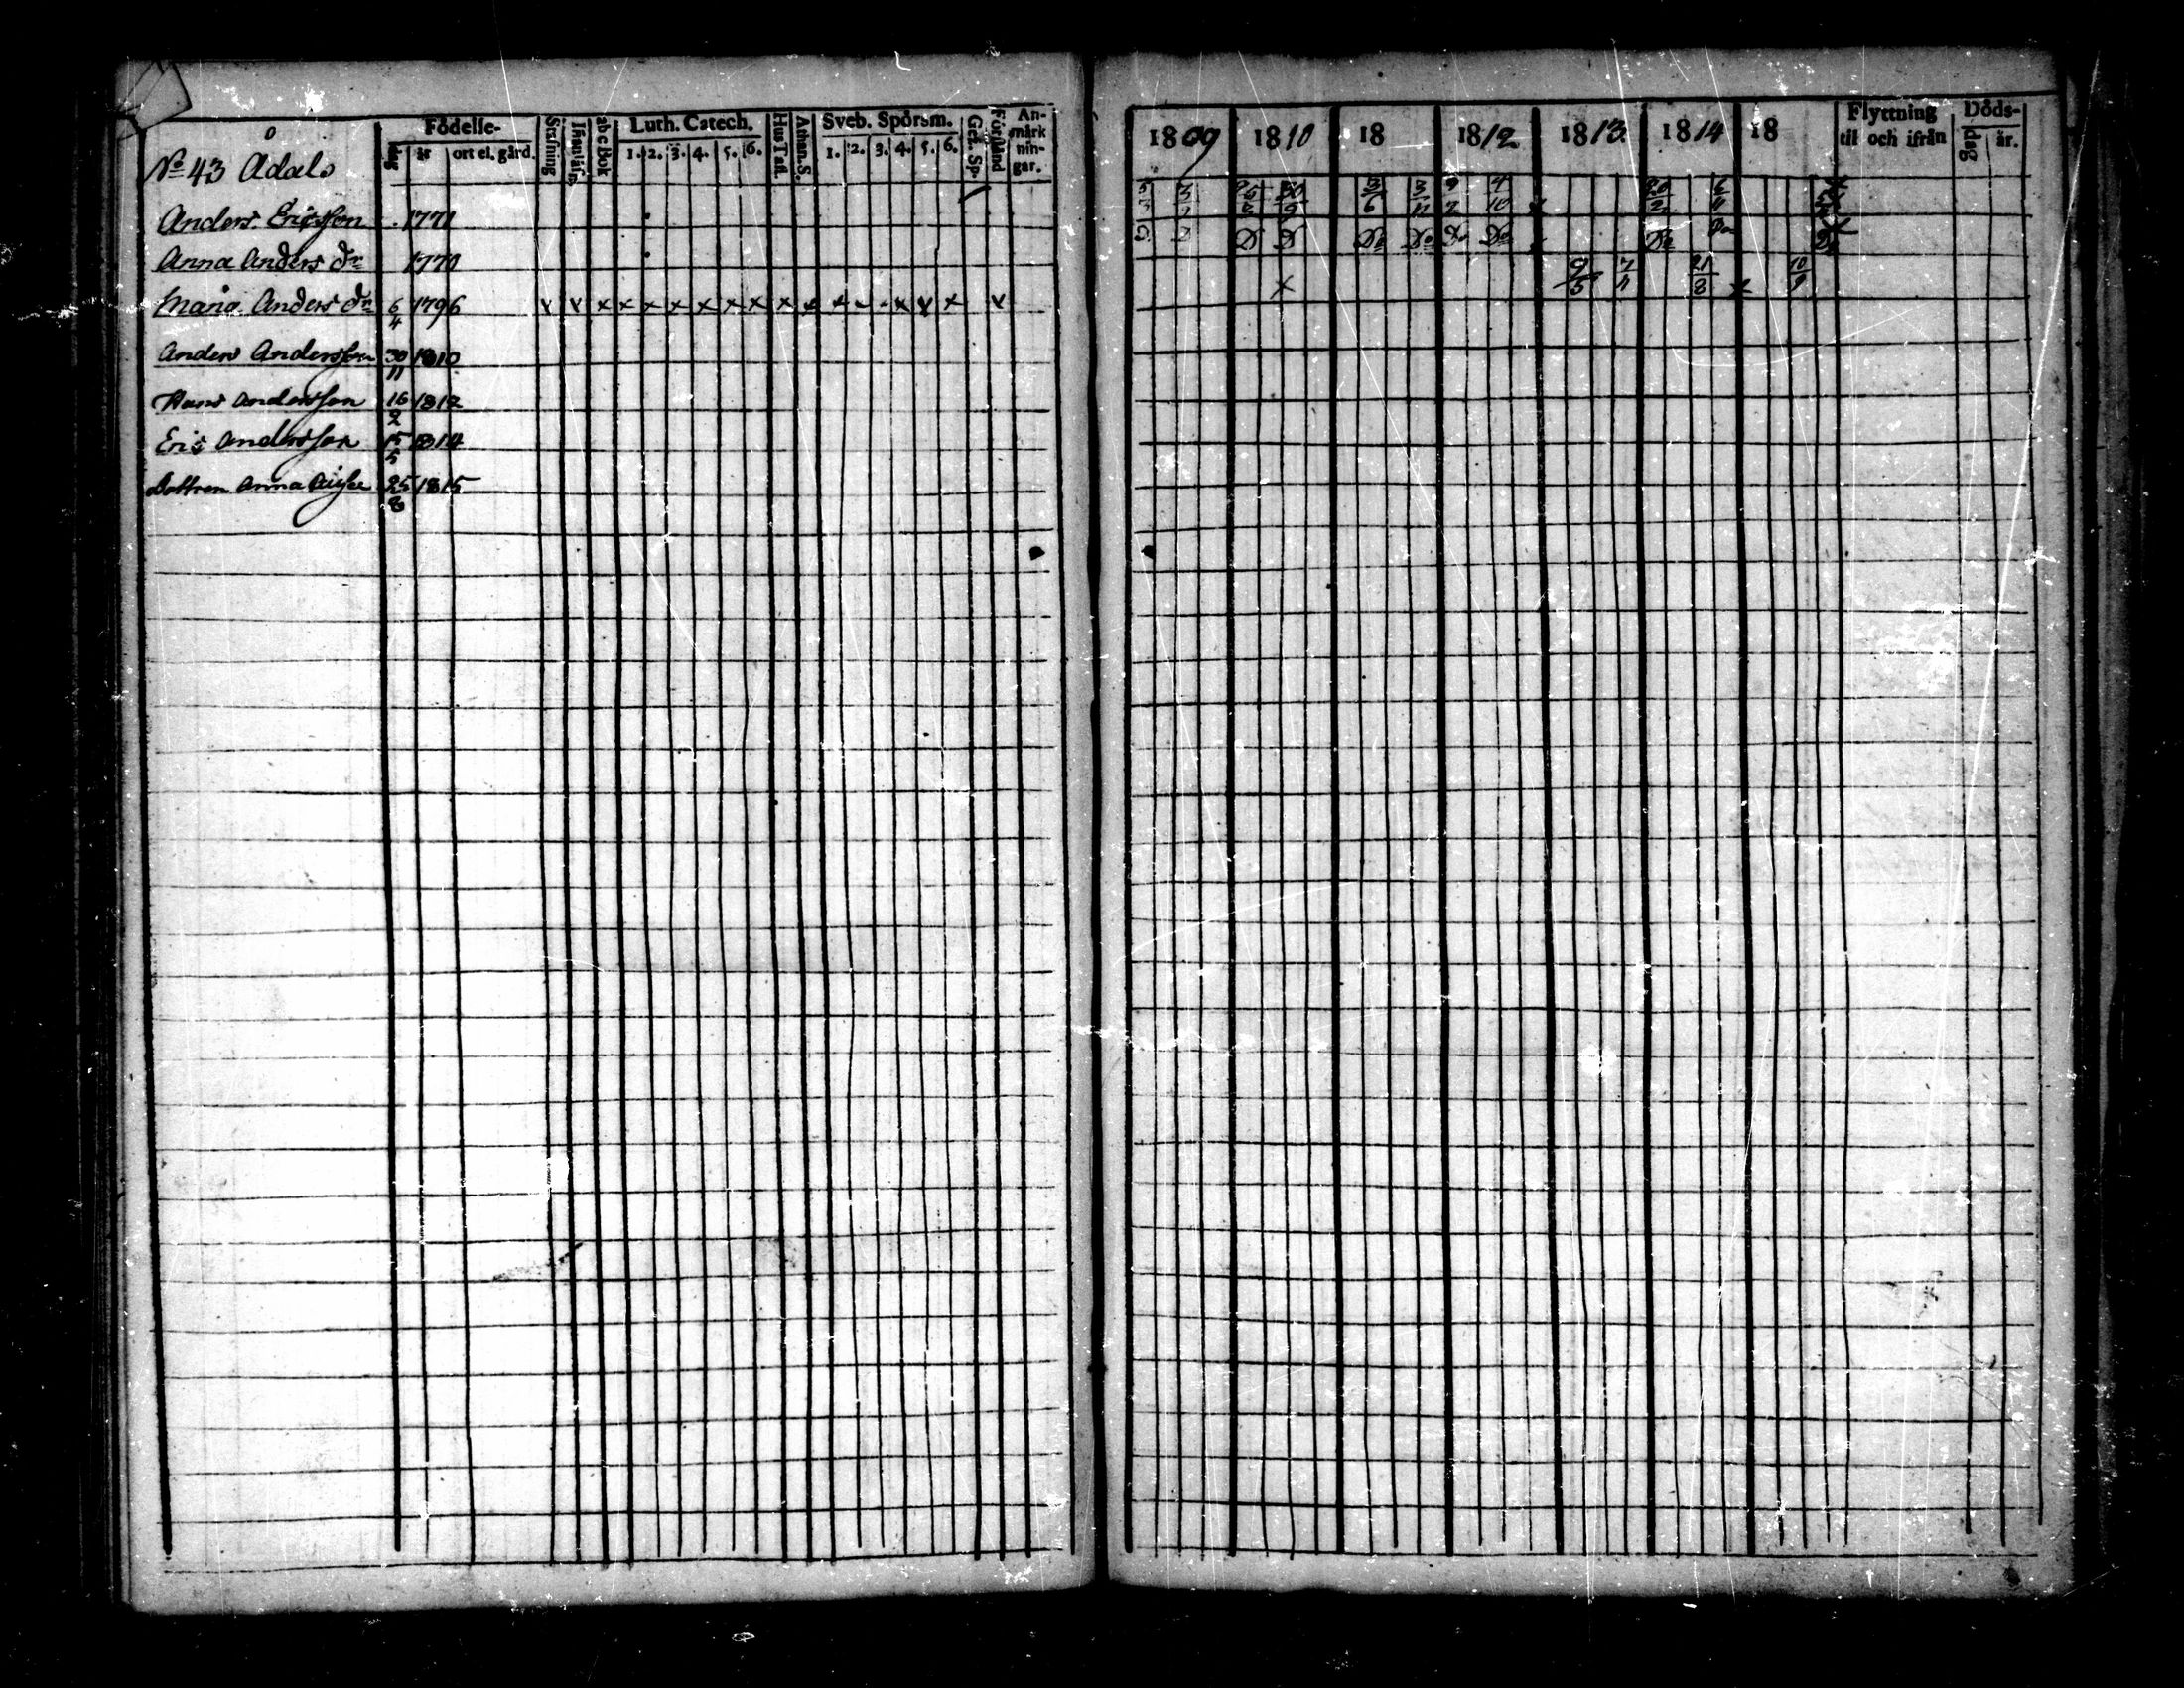 Födelse-
dag år ort el. gård.
Stafning Innanläsn. abc Bok
Luth. Catech.
1. 2. 3. 4. 5. 6.
Hus Tafl. Athan. S.
Sveb. Spörsm.
1. 2. 3. 4. 5. 6.
Gefl. Sp. Förstånd
An-
märk
nin-
gar.
No 43 Ådals
Anders Ericsson 1771
Anna Anders Dr 1770
Maria Anders Dr 6/4 1796 v v x x x x x x x x x x x v x v
Anders Andersson 30/11 1810
Hans Andersson 16/2 1812
Eric Andersson 15/5 1814
Dottren Anna 25/8 1815
1809 1810 18 1812 1813 1814 18
Flyttning
til och ifrån
Döds-
dag år.
30/9 3/6 3/11 4/10 20/2 6/4
Do Do Do Do Do
x 9/5 7/4 21/8 x 10/9